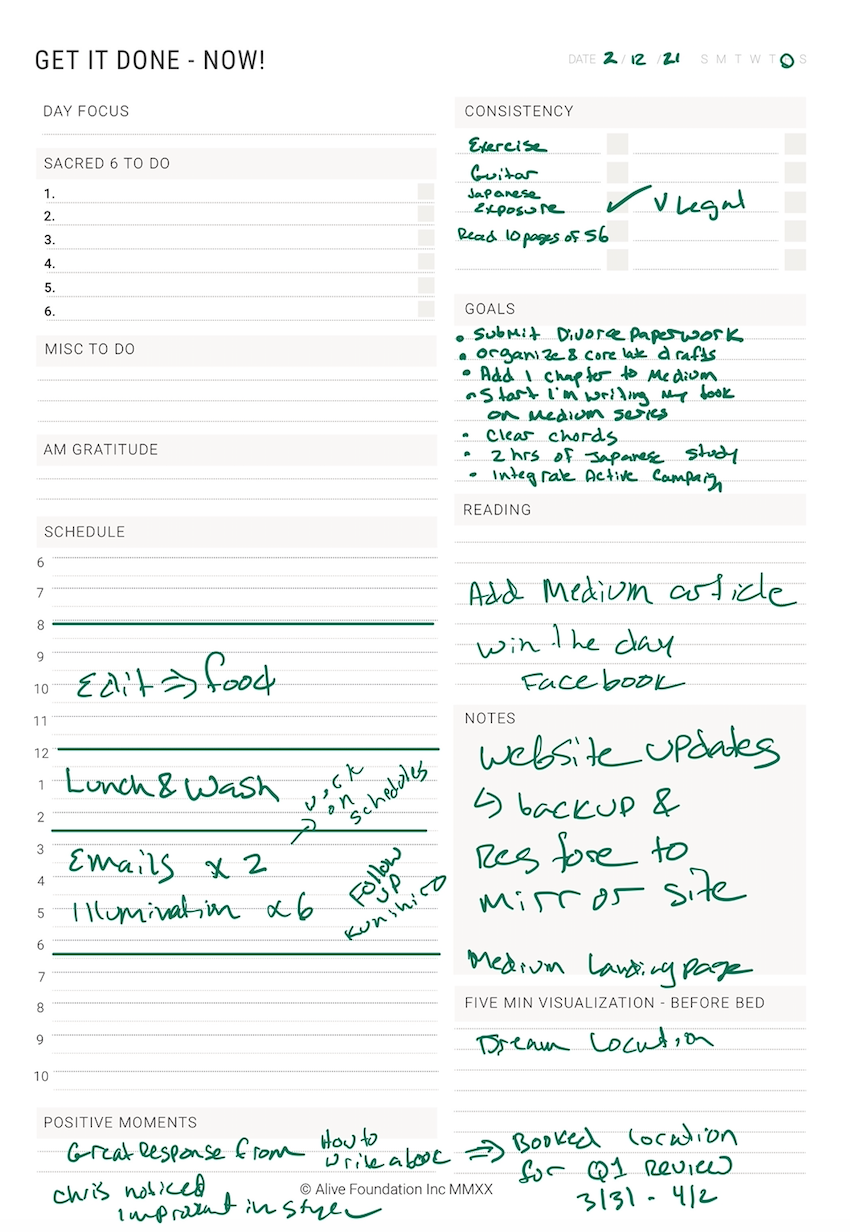 GET IT DONE - NOW!
DATE 2 / 12 / 21 S M T W T O S
DAY FOCUS
SACRED 6 TO DO
1.
2.
3.
4.
5.
6.
MISC TO DO
AM GRATITUDE
SCHEDULE
6
7
8
9
Edit ⇒ food
10
11
12
1 Lunch & Wash
2
→ on schedules
3 Emails x 2
4
Follow
UP
Kunihiro
5 Illumination x6
6
7
8
9
10
POSITIVE MOMENTS
Great Response from How to
write a book ⇒ Booked location
for Q1 Review
3/31 - 4/2
Chris noticed
in style
CONSISTENCY
Exercise
Guitar
Japanese
Exposure ✓ V Legal
Read 10 pages of 56
GOALS
• Submit Divorce Paperwork
• Organize 8 core drafts
• Add 1 chapter to Medium
• Start I'm writing my book
on Medium series
• Clear chords
• 2 hrs of Japanese Study
• Integrate Active Campaign
READING
Add Medium article
win the day
Facebook
NOTES
Website updates
↳ backup &
Restore to
mirror site
Medium Landing page
FIVE MIN VISUALIZATION - BEFORE BED
Dream Location
© Alive Foundation Inc MMXX